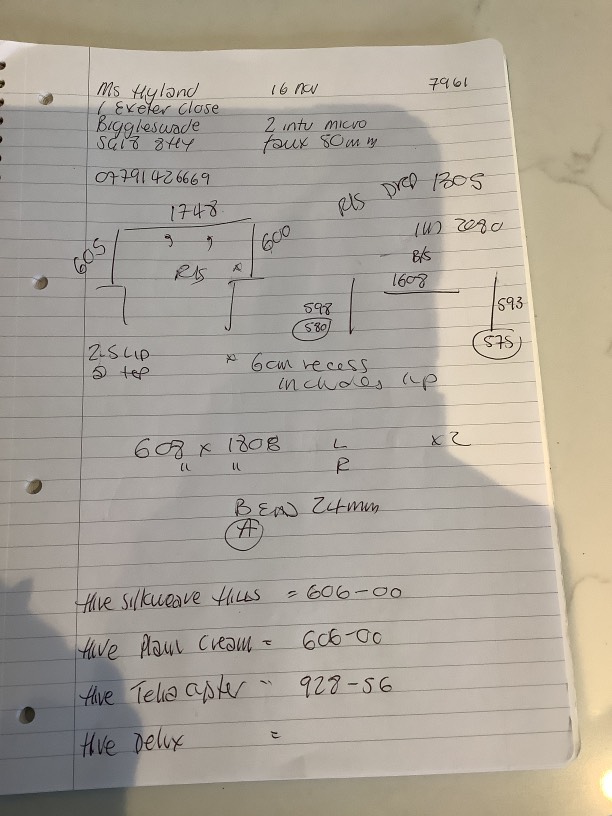 Ms Hyland 16 Nov 7961
1 Exeter Close
Biggleswade 2 intu micro
SG18 8HY faux 50mm
07791426669
R/S Drop 1305
1748
(W) 2080
605 600
R/S * B/S
1608
598 593
580 575
2-SLIP * 6cm recess
@ top includes lip
608 x 1808 L x2
" " R
BEAD 24mm
A
Hive Silkweave Hues = 606-00
Hive Plain Cream = 606-00
Hive = 928-56
Hive Delux =